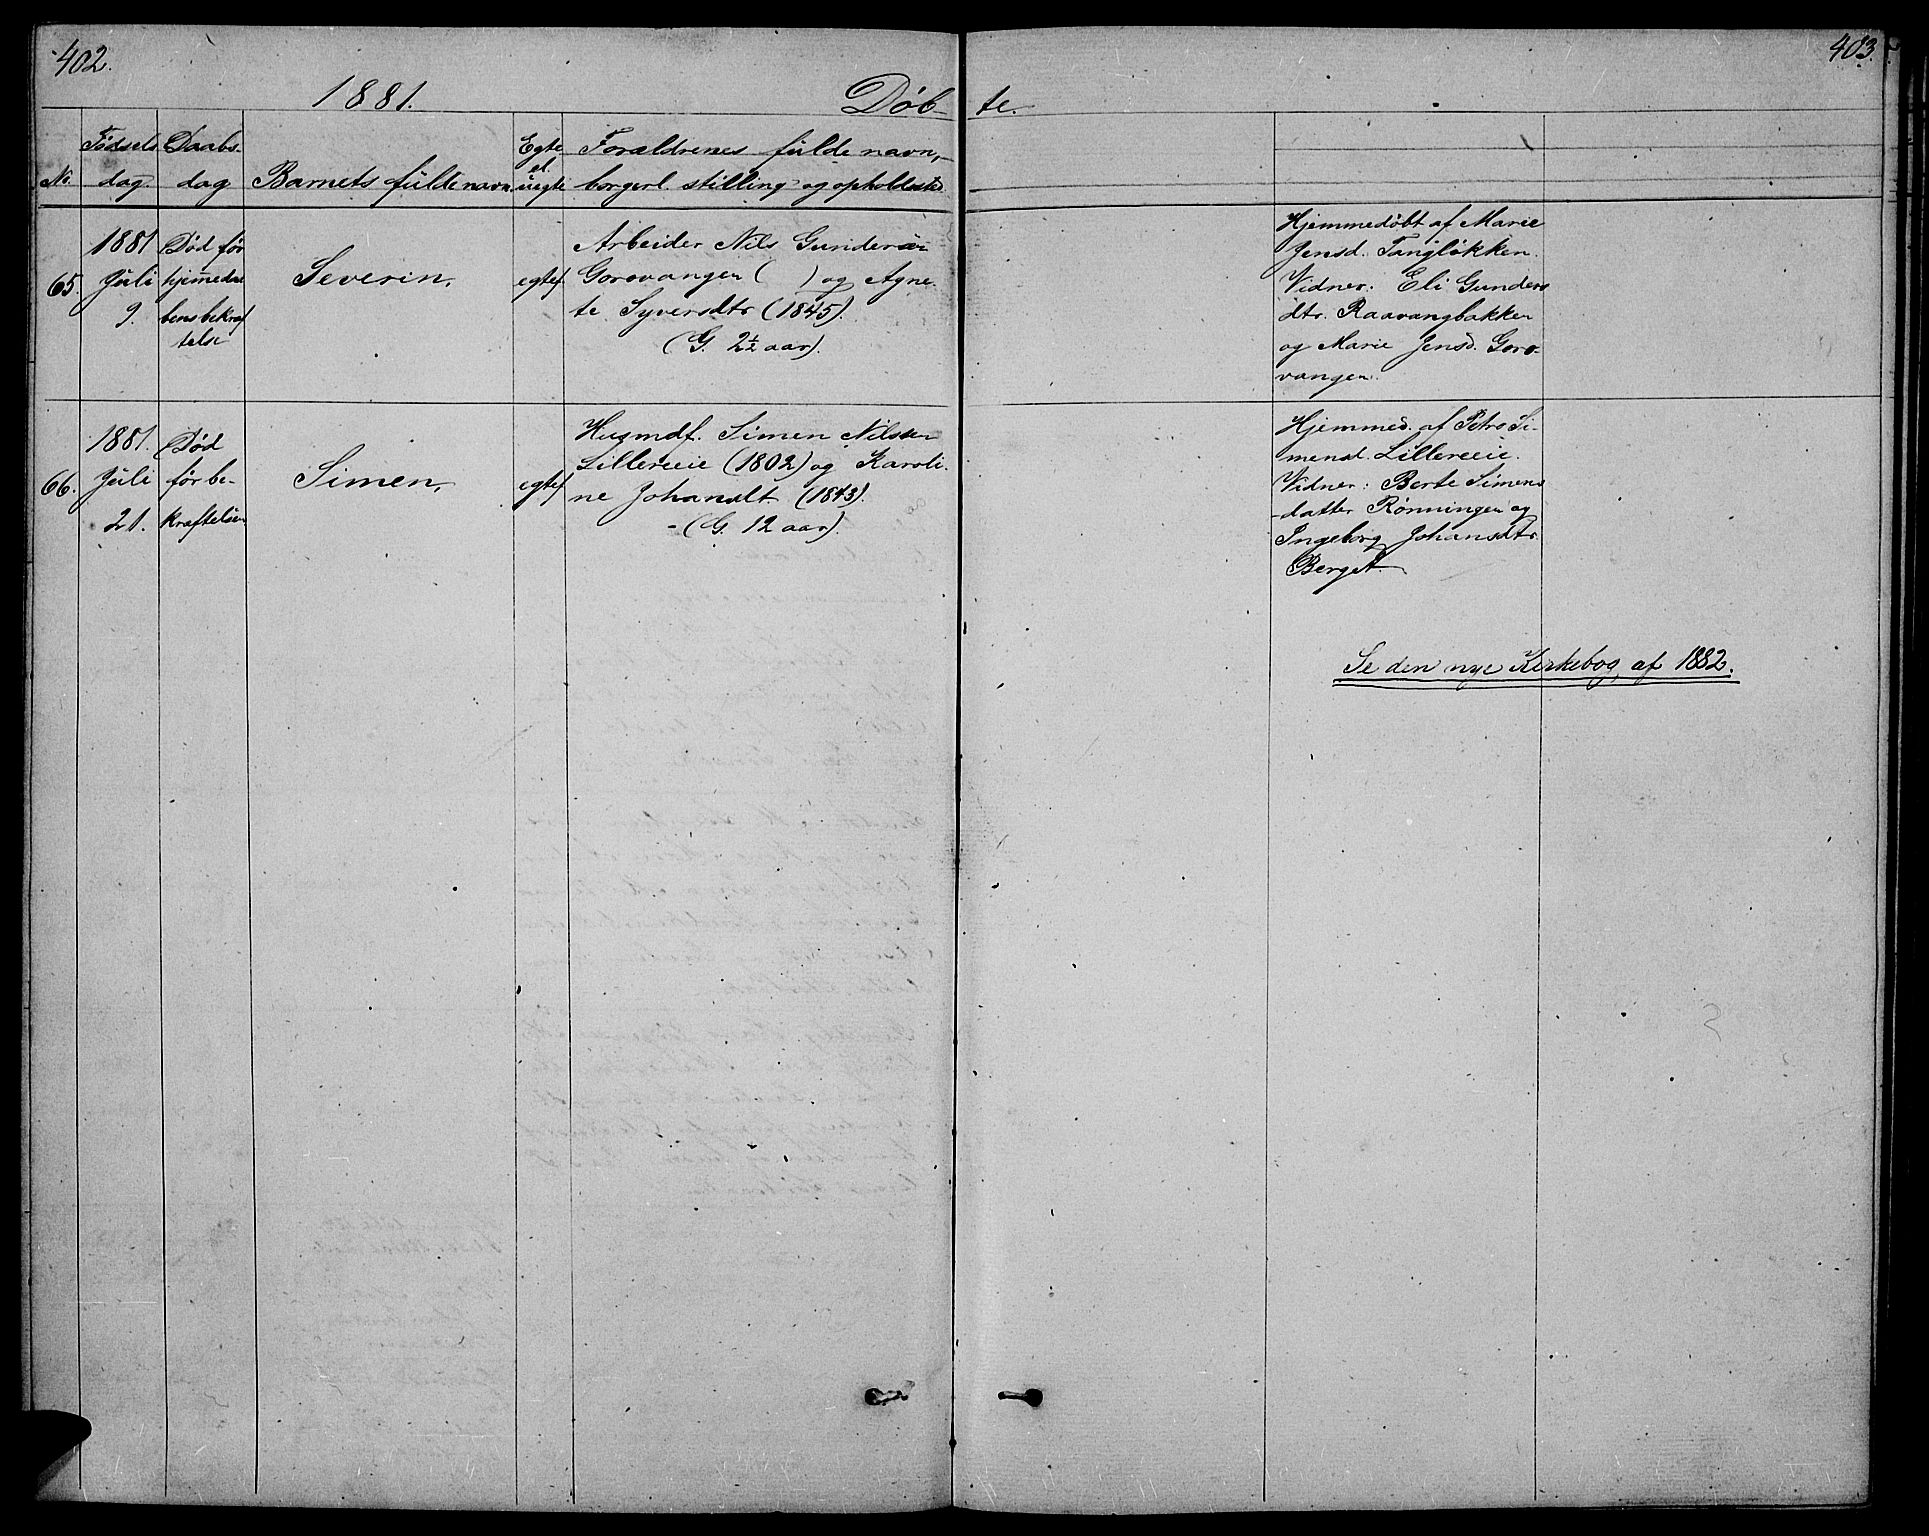 402.
403.
1881.
Døb-
te.
No.
Fødsels
dag.
Daabs-
dag
Barnets fulde navn.
Egte
el.
uegte
Forældrenes fulde navn,
borgerl. stilling og opholdssted
65.
1881
Juli
9.
Død før
hjemmedaa
bens bekræf
telse
Severin.
egtef.
Arbeider Nils Gundersen
Gorovangen ( ) og Agne
te Syversdtr (1845).
(G. 2½ aar).
Hjemmedøbt af Marie
Jensd. Tangløkken.
Vidner: Eli Gunders
dtr. Raavangbakken
og Marie Jensd. Goro-
vangen.
66.
1881.
Juli
21.
Død
før be-
kræftelsen
Simen.
egtef.
Husmdf. Simen Nilssen
Lillereeie (1802) og Karoli-
ne Johansdt. (1843).
-(G. 12 aar).
Hjemmed. af Petro Si-
mensd. Lillereeie.
Vidner: Berte Simens
-datter Rønningen og
Ingeborg Johansdtr.
Berget.
Se den nye Kirkebog af 1882.